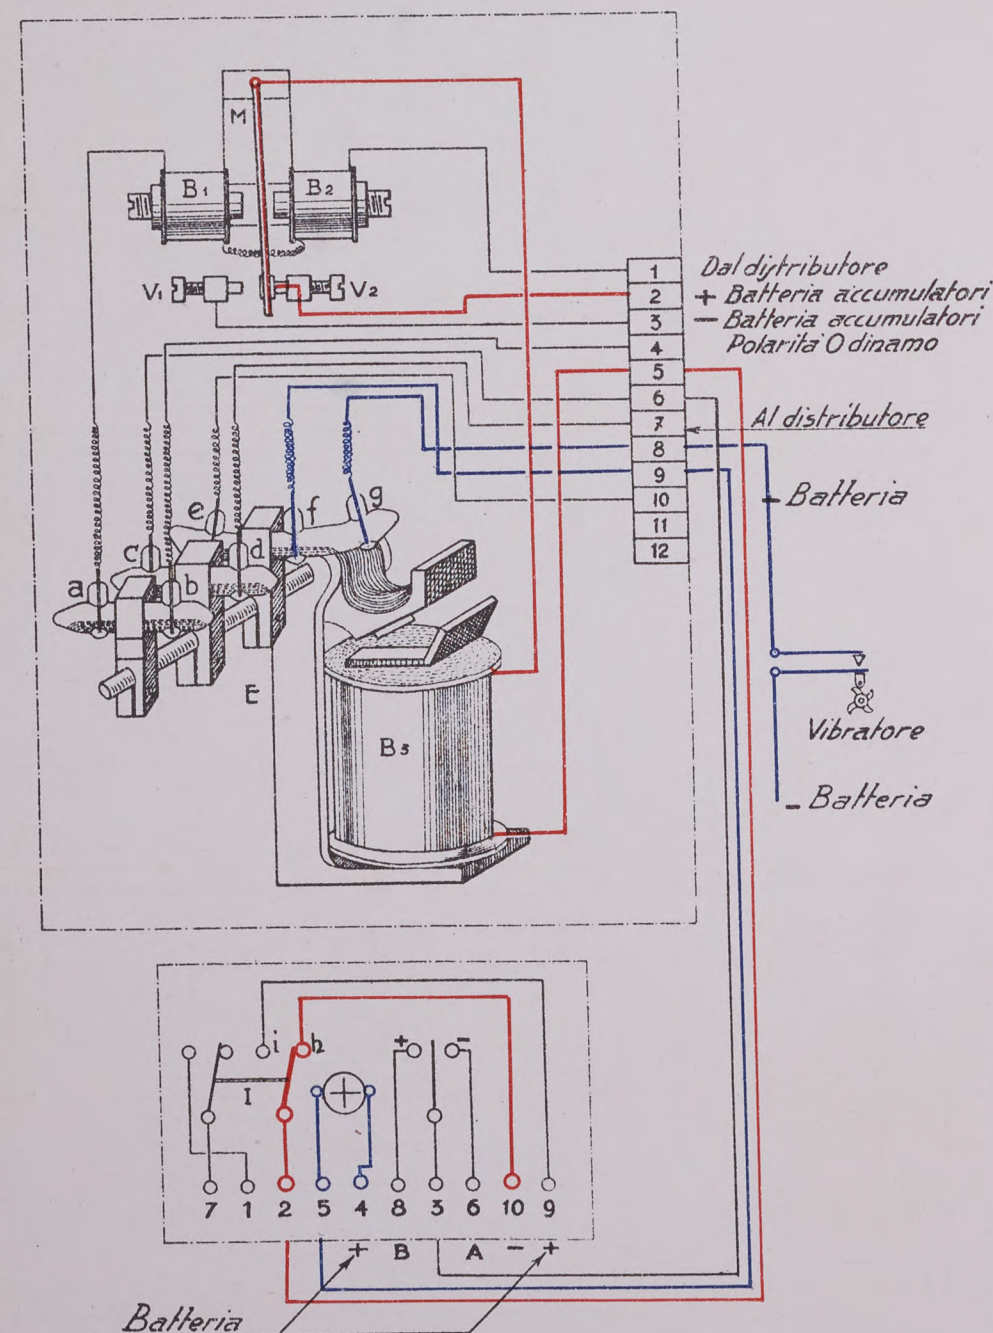 M
B1
B2
V1
V2
1
2
3
4
5
6
7
8
9
10
11
12
Dal distributore
+ Batteria accumulatori
- Batteria accumulatori
Polarità O dinamo
Al distributore
- Batteria
a
b
c
d
e
f
g
E
B3
Vibratore
- Batteria
i
h
+
-
I
+
7 1 2 5 4 8 3 6 10 9
+ B A - +
Batteria